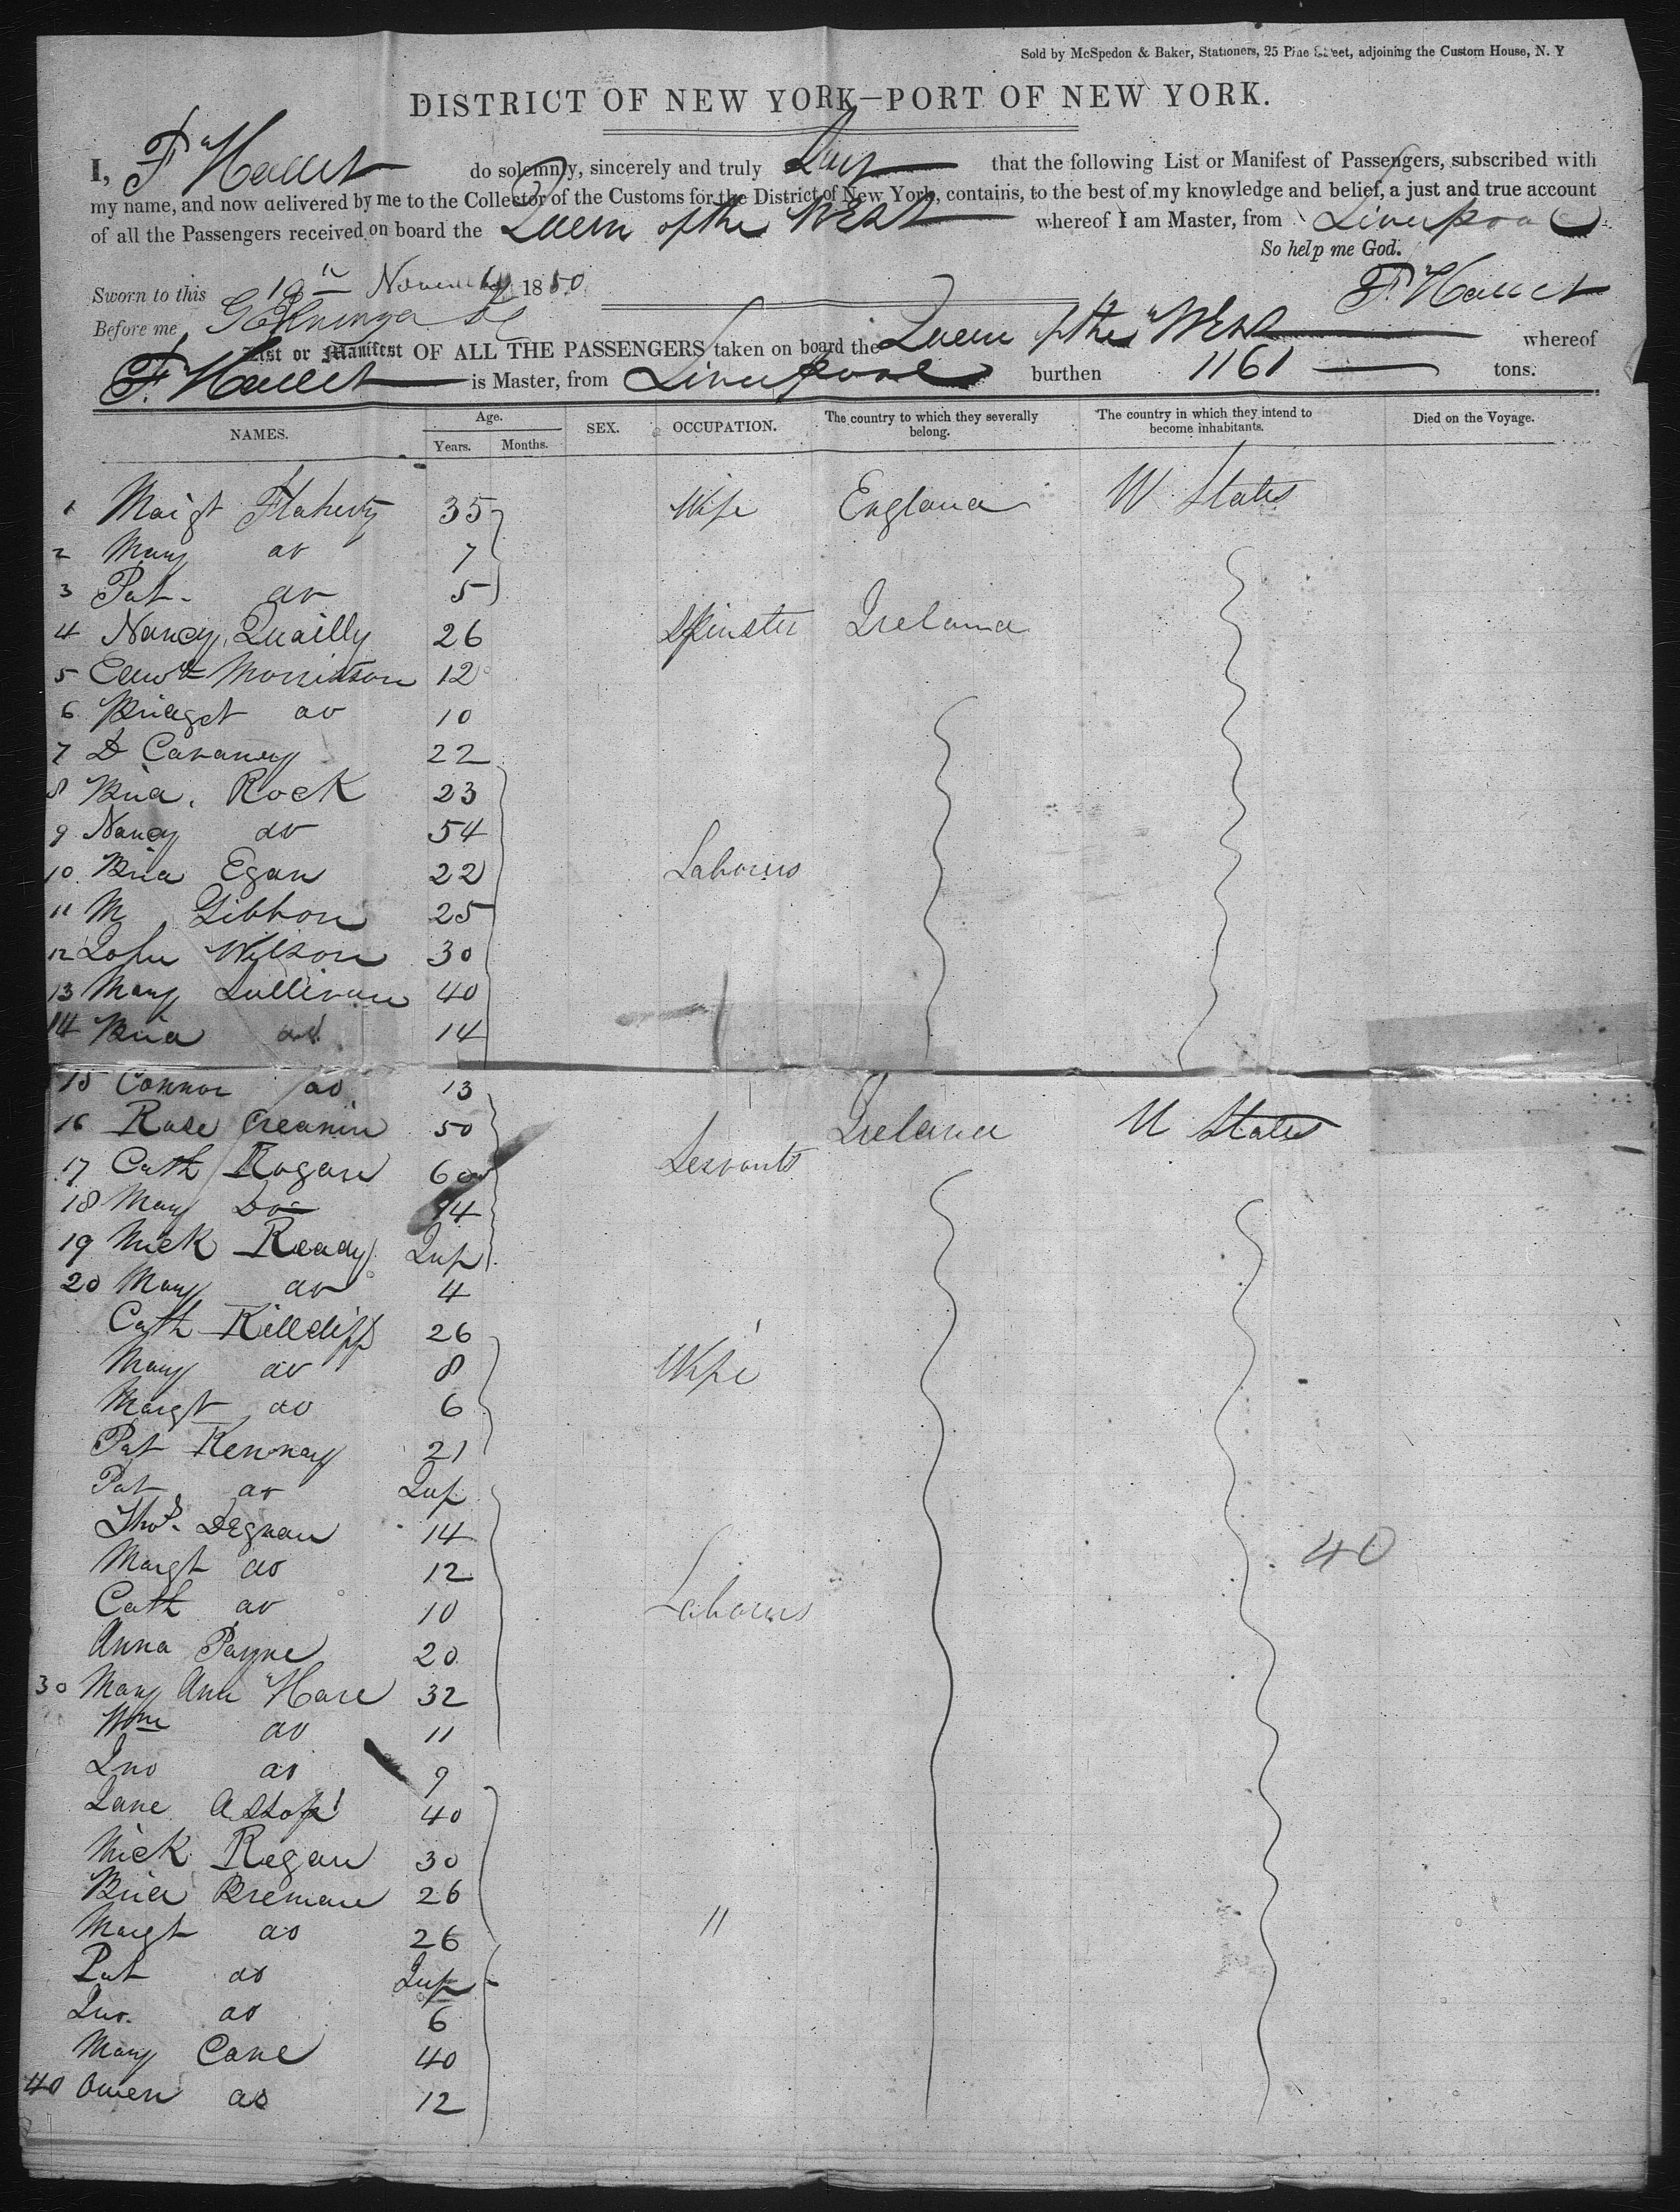 Sold by McSpedon & Baker, Stationers, 25 Pine Street, adjoining the Custom House, N. Y
DISTRICT OF NEW YORK—PORT OF NEW YORK.
I, F Hallet do solemnly, sincerely and truly that the following List or Manifest of Passengers, subscribed with
my name, and now delivered by me to the Collector of the Customs for the District of New York, contains, to the best of my knowledge and belief, a just and true account
of all the Passengers received on board the Queen of the West whereof I am Master, from Liverpool
So help me God.
Sworn to this 19th November 1850 F. Hallet
Before me
List or Manifest OF ALL THE PASSENGERS taken on board the Queen of the West whereof
F. Hallet is Master, from Liverpool burthen 1161 tons.
NAMES. Age. Years. Months. SEX. OCCUPATION. The country to which they severally belong. The country in which they intend to become inhabitants. Died on the Voyage.
1 Margt Flaherty 35 Wife England U States
2 Mary do 7
3 Pat do 5
4 Nancy Quailly 26 Spinster Ireland
5 Morrison 12
6 Bridget do 10
7 Cavaney 22
8 Brid. Rock 23
9 Nancy do 54
10 Brid Egan 22 Laborers
11 M Gibbon 25
12 John Wilson 30
13 Mary Sullivan 40
14 Brid do 14
15 Connor do 13
16 Rose Creanin 50 Ireland U States
17 Cath Rogan 60 Servants
18 Mary Do 14
19 Mick Ready Inf
20 Mary do 4
Cath Killcliff 26
Mary do 8 Wife
Margt do 6
Pat Kennay 21
Pat do Inf
Thos. Degnan 14
Margt do 12 40
Cath do 10 Laborers
Anna Payne 20
30 Mary Ann Hare 32
Wm do 11
Jno do 9
Jane 40
Mick Regan 30
Brid Brenan 26
Margt do 26 "
Pat do Inf
Jno. do 6
Mary Cane 40
40 Owen do 12